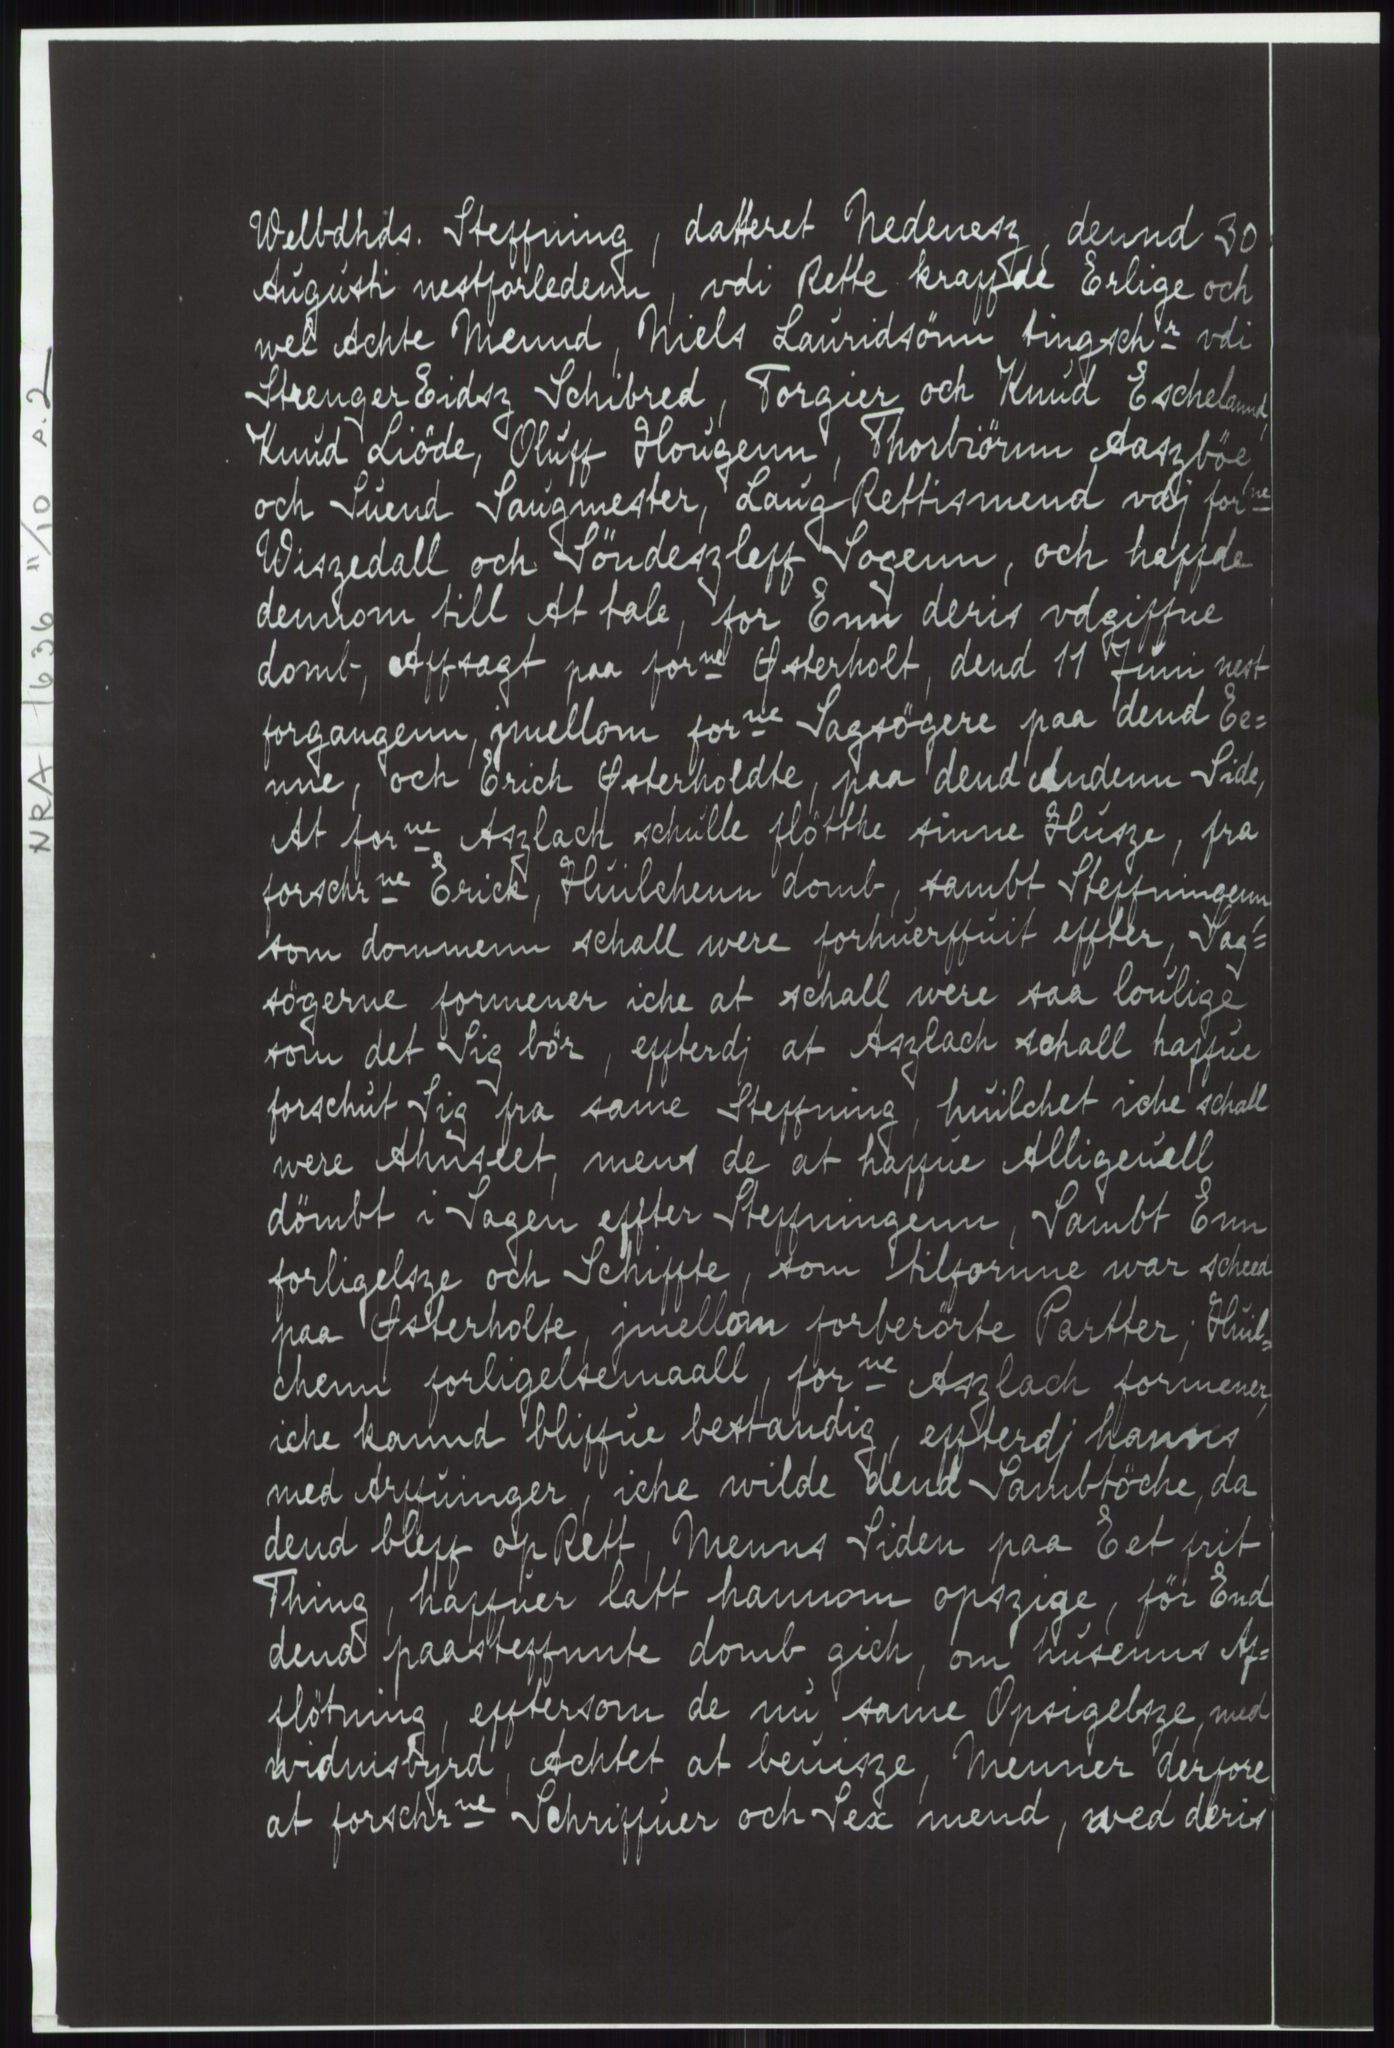 Welbdhds. Steffning, datteret Nedenesz, dennd 30
Augusti nestforledenn, vdi Rette kraffde Erlige och
wel Achte Mennd, Niels Lauridsönn tingschr vdi
StrengerEidsz Schibred, Torgier och Knud Eschelannd,
Knud Liöde, Oluff Hougenn, Thorbiörnn Aaszböe
och Suend Saugmester, Laug Rettismend vdj forne
Wiszedall och Söndeszleff Sogenn, och haffde
dennom till At tale, for Enn deris vdgiffne
domb, Affsagt paa forne Østerholt, dend 11 Juni nest
forgangenn, jmellom forne Sagsögere paa dend Ee=
nne, och Erich Østerholdte, paa dend Andenn Side,
At forne Aszlach schulle flötthe sinne Husze, fra
forschrne Erick, Huilchenn domb, sambt Steffningenn,
som dommenn schall were forhuerffuit effter, Sag=
sögerne formener iche at schall were saa loulige
som det Sig bör, effterdj at Aszlach schall haffue
forschut Sig fra same Steffning, huilchet iche schall
were Ahnslet, mens de at haffue Alligeuell
dömbt i Sagen effter Steffningenn, Sambt Enn
forligelsze och Schiffte, som tilfornne war scheed
paa Østerholte, jmellom forberörte Partter; Huil=
chenn forligelsemaall, forne Aszlach formener,
iche kannd bliffue bestandig, effterdj hanns
med Arfuinger, iche wilde dend Sambtöche, da
dend bleff op Rett, Menns Siden paa Eet frit
Thing, haffuer latt hannom opszige, för End
dend paasteffnnte domb gich, om husenns Af=
flötning, efftersom de nu same Opsigelsze, med
widnisbyrd, Achtet at beuisze, Menner derfore
at forschrne Schriffuer och Sex mend, wed deris
NRA 1636 11/10 p. 2